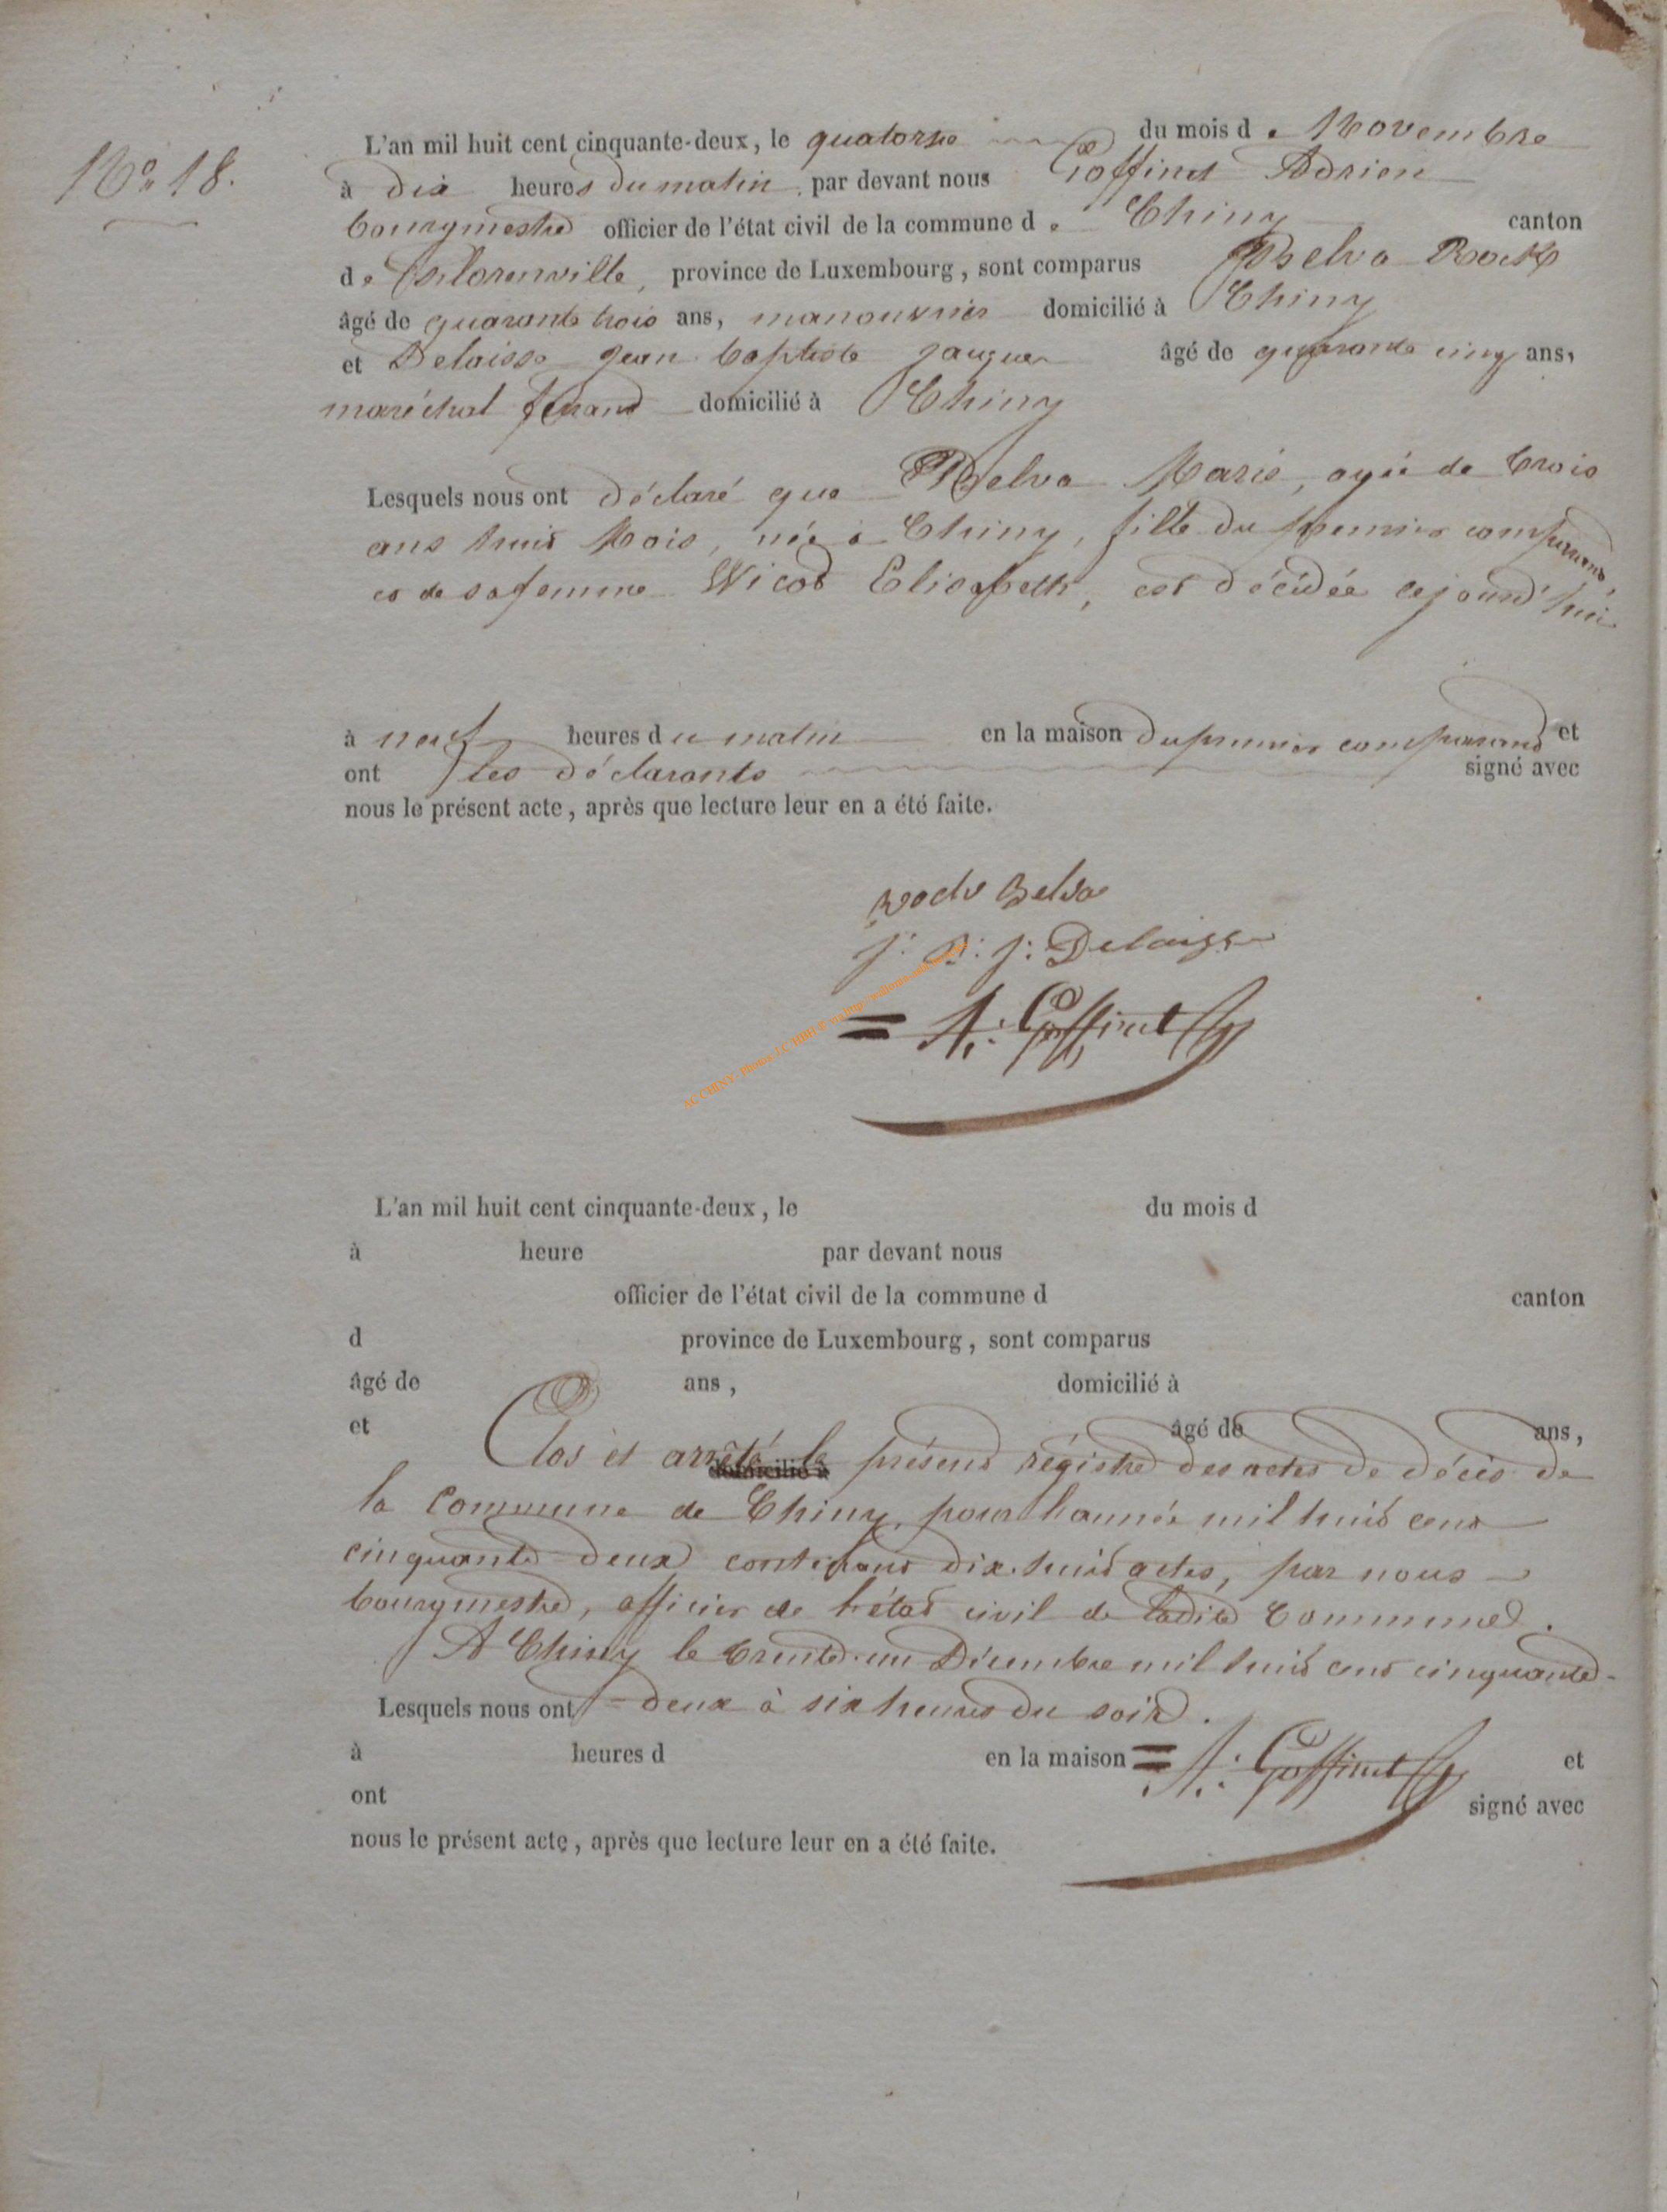 N° 18.
L'an mil huit cent cinquante-deux, le quatorze du mois de Novembre
à dix heures du matin, par devant nous Goffinet Adrien
bourgmestre officier de l'état civil de la commune de Chiny canton
de Florenville, province de Luxembourg, sont comparus Belva Roch
âgé de quarante trois ans, manouvrier domicilié à Chiny
et Delaisse Jean baptiste Jacques âgé de quarante cinq ans,
maréchal ferrant domicilié à Chiny
Lesquels nous ont déclaré que Belva Marie, agée de trois
ans huit Mois, née à Chiny, fille du premier comparant,
et de sa femme Nicod Elisabeth, est décédée cejourd'hui
à neuf heures du matin en la maison du premier comparant et
ont les déclarants signé avec
nous le présent acte, après que lecture leur en a été faite.
roch Belva
J: B: J: Delaisse
= A: Goffinet
L'an mil huit cent cinquante-deux, le du mois d
à heure par devant nous
officier de l'état civil de la commune d canton
d province de Luxembourg, sont comparus
âgé de ans, domicilié à
et âgé de ans,
Clos et arrêté le présent régistre des actes de décès de
domicilié à
la Commune de Chiny, pour l'année mil huit cent
cinquante deux contenant dix-huit actes, par nous
bourgmestre, officier de l'état civil de ladite Commune.
A Chiny le trente-un Décembre mil huit cent cinquante-
Lesquels nous ont deux à six heures du soir.
à heures d en la maison = A: Goffinet et
ont signé avec
nous le présent acte, après que lecture leur en a été faite.